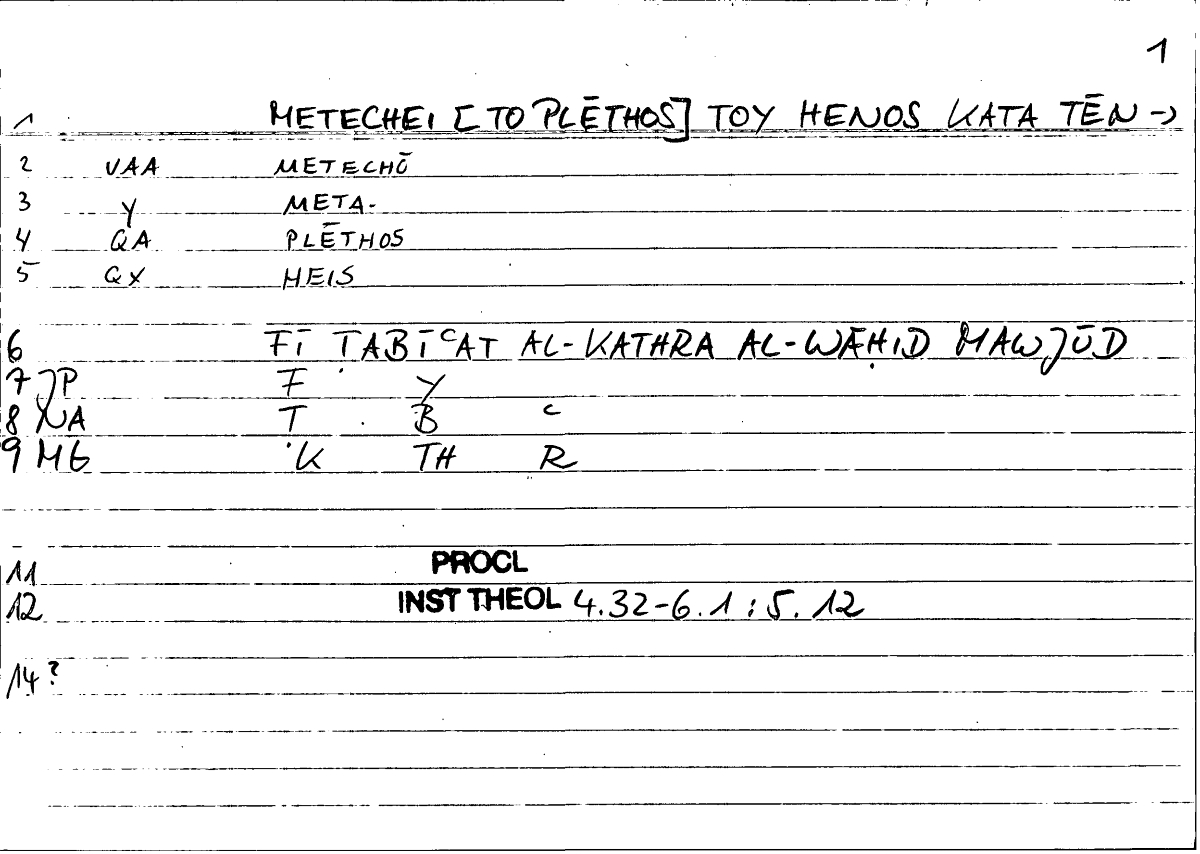 1
1 METECHEI [TO PLĒTHOS] TOY HENOS KATA TĒN →
2 VAA METECHŌ
3 Y META-
4 QA PLĒTHOS
5 QX HEIS
6 FĪ ṬABĪᶜAT AL-KATHRA AL-WĀḤID MAWJŪD
7 JP F Y
8 NA Ṭ B ᶜ
9 MG K TH R
11 PROCL
12 INST THEOL 4.32-6.1 : 5.12
14 ?